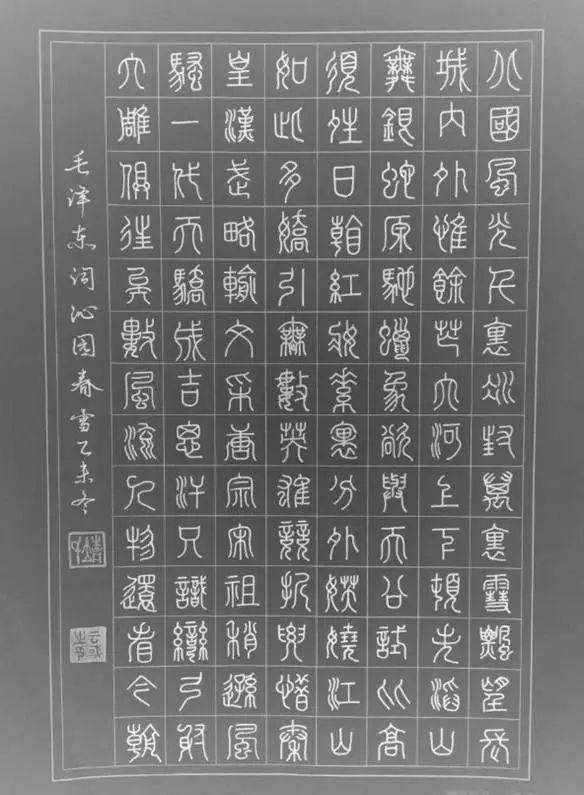 北國風光千裏冰封萬裏雪飄望長
城內外惟餘芒大河上下頓失滔山
舞銀蛇原馳蠟象欲與天公試比高
須晴日看紅妝素裹分外妖嬈江山
如此多嬌引無數英雄競折腰惜秦
皇漢武略輸文采唐宗宋祖稍遜風
騷一代天驕成吉思汗只識彎弓射
大雕俱往矣數風流人物還看今朝
毛泽东词沁园春雪乙未冬